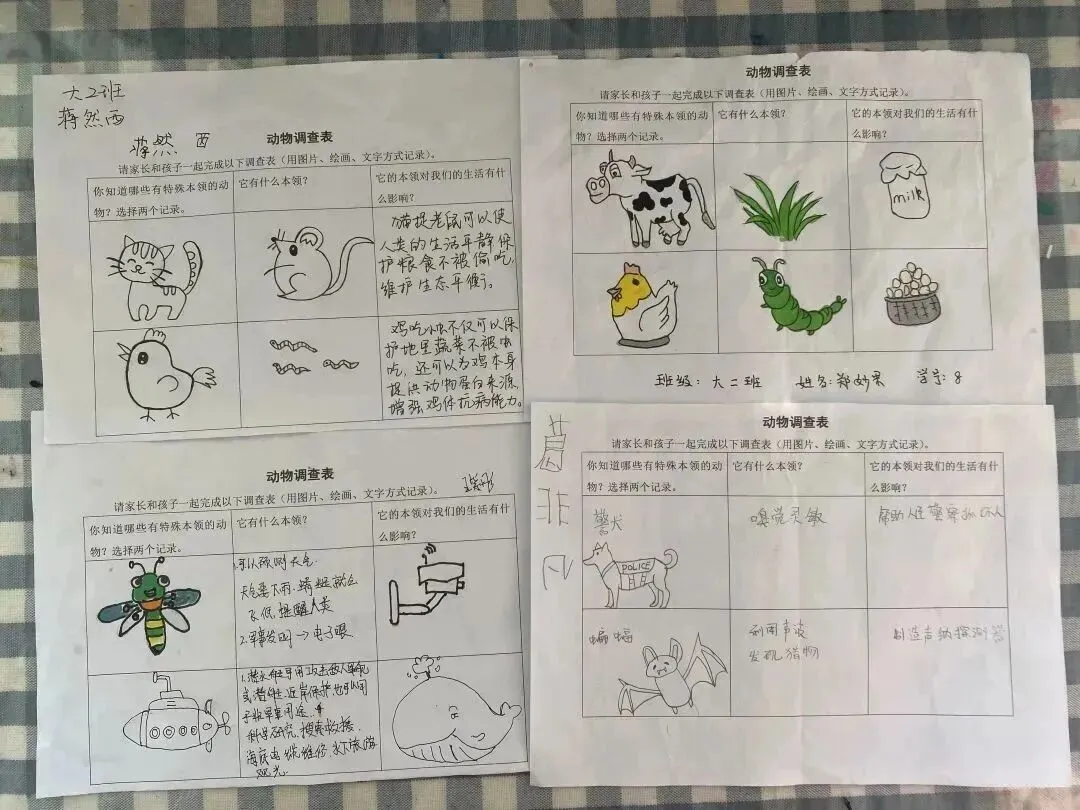 大二班
蒋然西
蒋然 西
动物调查表
请家长和孩子一起完成以下调查表（用图片、绘画、文字方式记录）。
你知道哪些有特殊本领的动物？选择两个记录。
它有什么本领？
它的本领对我们的生活有什么影响？
猫捉老鼠可以使
人类的生活平静保
护粮食不被偷吃,
维护生态平衡。
鸡吃虫不仅可以保
护地里蔬菜不被虫
吃,还可以为鸡本身
提供动物蛋白来源,
增强鸡体抗病能力。
动物调查表
请家长和孩子一起完成以下调查表（用图片、绘画、文字方式记录）。
你知道哪些有特殊本领的动物？选择两个记录。
它有什么本领？
它的本领对我们的生活有什么影响？
milk
班级: 大二班 姓名: 郑妙 学号: 8
动物调查表
请家长和孩子一起完成以下调查表（用图片、绘画、文字方式记录）。
你知道哪些有特殊本领的动物？选择两个记录。
它有什么本领？
它的本领对我们的生活有什么影响？
1.可以预测天气.
天气要下雨,蜻蜓就会
飞低,提醒人类
2.军事发明→电子眼
1.潜水艇可用攻击敌人军舰
或潜艇、近岸保护,也可以用
于非军事用途.
科学研究,搜索救援,
海底电缆维修,水下旅游
观光.
动物调查表
请家长和孩子一起完成以下调查表（用图片、绘画、文字方式记录）。
你知道哪些有特殊本领的动物？选择两个记录。
它有什么本领？
它的本领对我们的生活有什么影响？
非
凡
警犬
POLICE
嗅觉灵敏
帮助人民警察抓坏人
蝙蝠
利用声波
发现猎物
制造声纳探测器